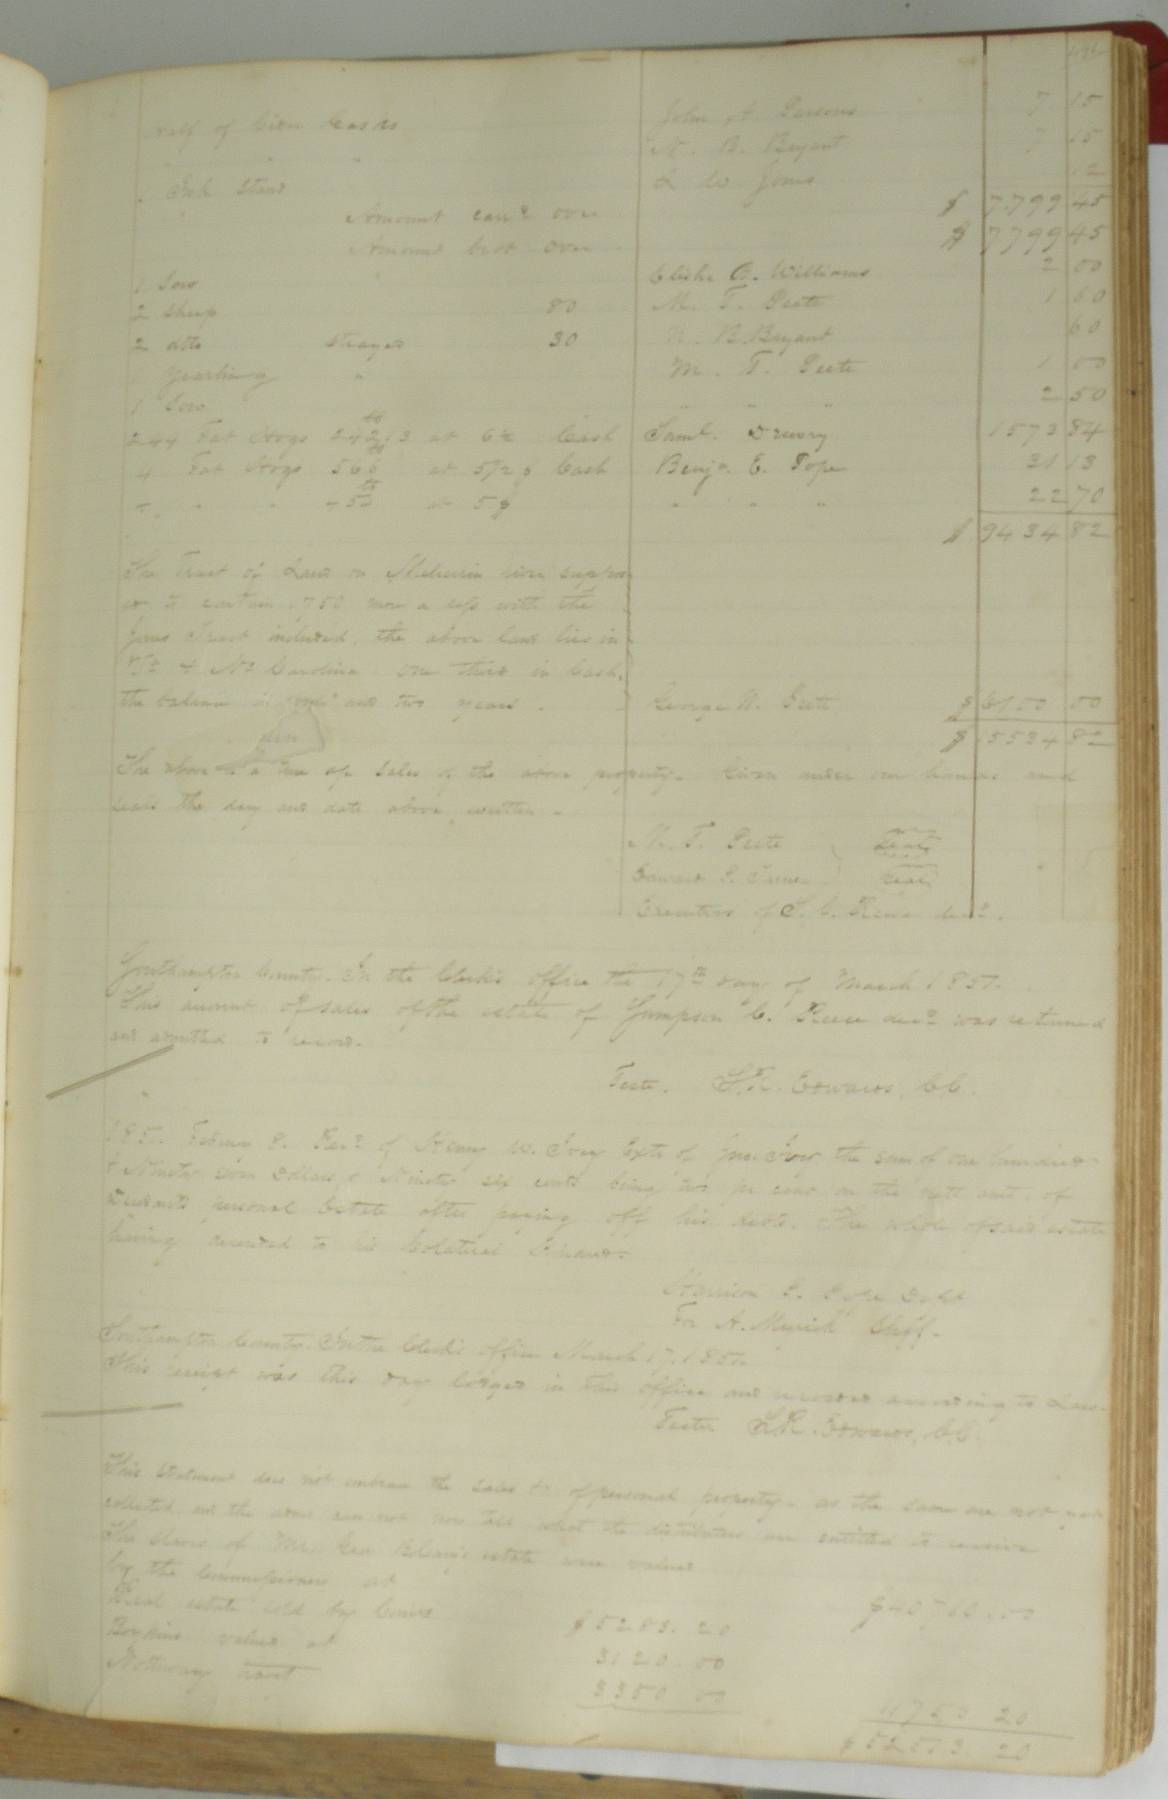 Half of Cider Casks John A. Persons 7 15
" " N. B. Bryant 7 15
1 Ink Stand L W Jones 12
Amount carrd over $ 7799 45
Amount brot over $ 7799 45
1 Sow B. Williams 2 00
2 Sheep 80 M. T. Peete 1 60
2 ditto strayed 30 N. B. Bryant 60
1 Yearling " M. T. Peete 1 00
1 Sow " " " 2 50
244 Fat Hogs at 6½ Cash Saml. Drewry 1573 84
4 Fat Hogs 566 lb at 5½ ¢ Cash Benjn. E. Pope 31 13
" " at 5¢ " " " 22 70
$ 9434 82
The Tract of Land on Meherrin river suppos
ed to contain 750 more or less with the
Jones Tract included, the above land lies in
Va & No Carolina one third in Cash,
the balance in one and two years. George W. Peete $ 6100 00
$ 15534 82
The above is a true of sales of the above property. Given under our hands and
seals the day and date above written.
M. T. Peete Seal
Edward S. Seal
Executors of S. C. Reese decd.
Southampton County. In the Clerk's office the 17th day of March 1851.
This account of sales of the estate of Sampson C. Reese decd was returned
and admitted to record.
Teste. L. R. Edwards, C.C.
1851. Feby 8. Recd of Henry W. Ivey Extr of Jno. Ivey the sum of one hundred
& Ninety seven Dollars & Ninety six cents being two pr cent on the nett amt. of
decedents personal Estate after paying off his debts. The whole of said estate
having to his Colateral
Harrison P. Pope Dept
For A. Myrick Shff.
Southampton County. In the Clerk's office March 17, 1851.
This receipt was this day lodged in this office and recorded according to Law.
Teste L. R. Edwards, C.C.
This Statement does not embrace the sales &c of personal property. as the same are not yet
collected and the can not now tell what the distributees are entitled to receive
The Slaves of Mr. estate were valued
by the Commissioners at $40760.00
Real estate sold by $5283.20
Boykins valued at 3120.00
Nottoway tract 3350 00
20
20